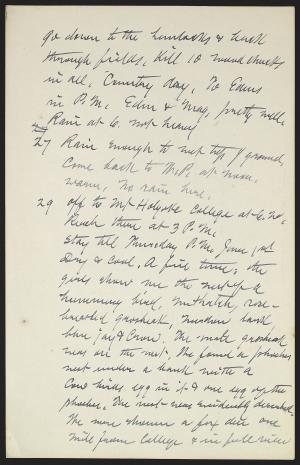 go down to the hemlocks & back
through fields, Kill 10 wood chucks
in all, Country day, To Evans
in P.M. Edm & Mag, pretty well,
Rain at 6. not heavy
27 Rain enough to wet top of ground,
Come back to W.P. at noon,
warm, No rain here,
29 Off to Mt Holyoke College at 6.
Reach there at 3 P.M.
Stay till Thursday P.M. June 1st
Dry & cool, A fine time, the
girls show me the nest of a
humming bird, nuthatch, rose-
breasted grosbeak, Purple bank
blue jay & Crow. The male grosbeak
was on the nest. We found a phoebes
nest under a bank with a
Cow birds egg in it & one egg of the
phoebe. The nest was evidently deserted.
We were shown a fox den one
mile from College & in full view